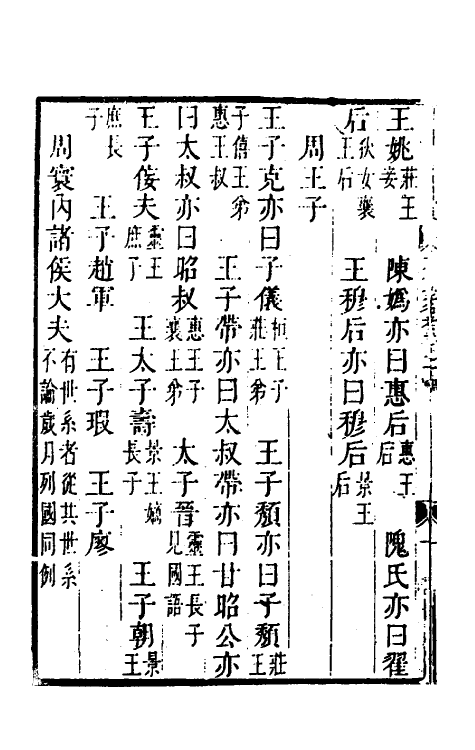 王姚莊王妾　陳嬀亦曰惠后惠王后　隗氏亦曰翟
后狄女襄王后　王穆后亦曰穆后景王后
周王子
王子克亦曰子儀桓王子莊王弟　王子頽亦曰子頽莊王
子僖王弟惠王叔　王子帶亦曰太叔帶亦曰甘昭公亦
曰太叔亦曰昭叔惠王子襄王弟　太子晉靈王長子見國語
王子佞夫靈王庶子　王太子壽景王嫡長子　王子朝景王
庶長子　王子趙軍　王子瑕　王子廖
周寰內諸侯大夫有世系者從其世系不論歲月列國同例